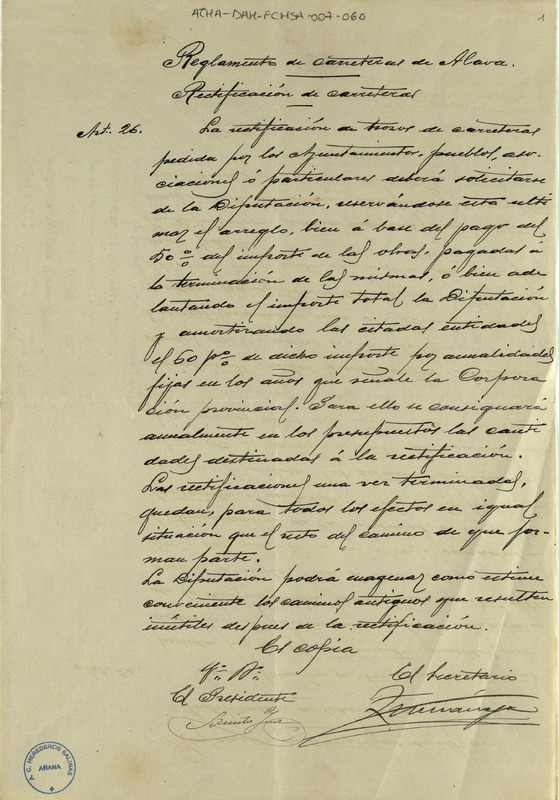 ATHA-DAH-FCHSA-007-060
1
Reglamento de carreteras de Alava.
Rectificación de carreteras
Art. 26. La rectificación de trozos de carreteras
pedida por los Ayuntamientos, pueblos, aso-
ciaciones ó particulares deberá solicitarse
de la Diputación, reservándose esta ulti
mar el arreglo, bien á base del pago del
50 % del importe de las obras, pagadas á
la terminación de las mismas, ó bien ade
lantando el importe total la Diputación
y amortizando las citadas entidades
el 60 p% de dicho importe por anualidades
fijas en los años que señale la Corpora
ción provincial. Para ello se consignará
anualmente en los presupuestos las canti
dades destinadas á la rectificación.
Las rectificaciones una vez terminadas,
quedan, para todos los efectos en igual
situación que el resto del camino de que for-
man parte.
La Diputación podrá enagenar como estime
conveniente los caminos antiguos que resulten
inútiles despues de la rectificación.
Es copia
Vº Bº
El Secretario
El Presidente
A.C. HEREDEROS SALINAS
ARANA